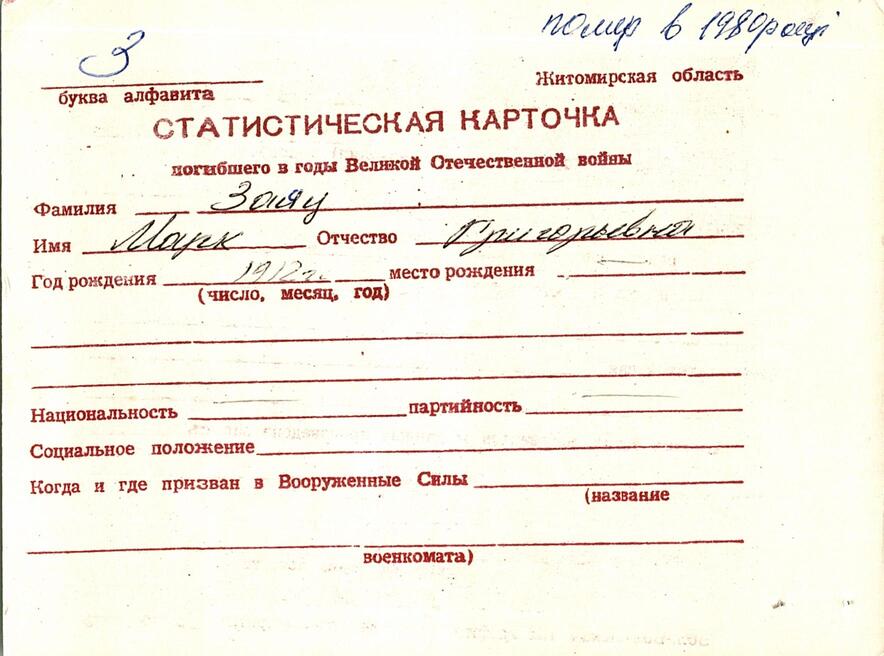 помер в 1980 році
З
Житомирская область
буква алфавита
СТАТИСТИЧЕСКАЯ КАРТОЧКА
погибшего в годы Великой Отечественной войны
Фамилия Заяц
Имя Марк Отчество Григорьевич
Год рождения 1912 г. место рождения —
(число, месяц, год)
Национальность — партийность —
Социальное положение
Когда и где призван в Вооруженные Силы
(название
военкомата)